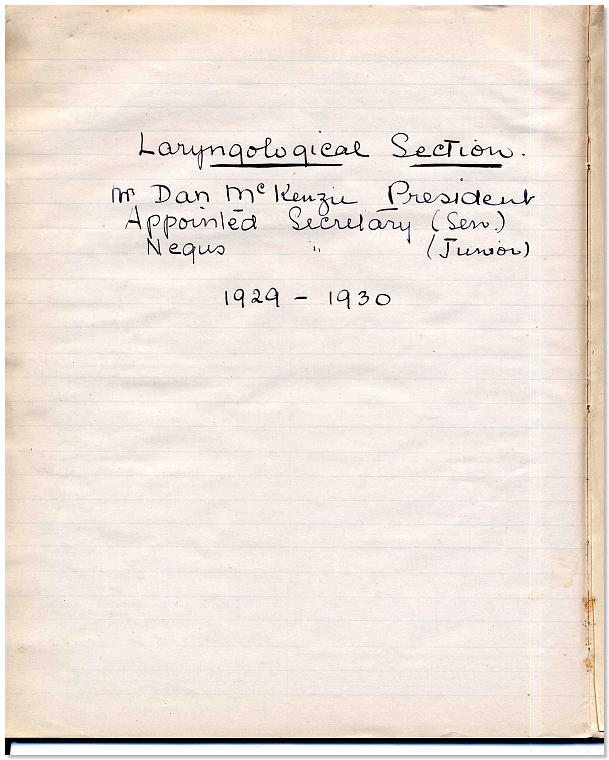 Laryngological Section.
Mr Dan McKenzie President
Appointed Secretary (Sen.)
Negus " (Junior)
1929 - 1930